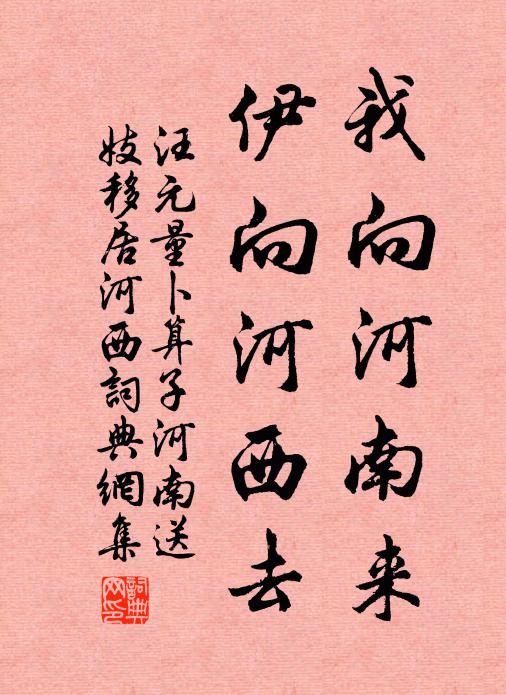 我向河南来
伊向河西去
汪元量卜算子河南送
妓移居河西詞典網集
詞典網印